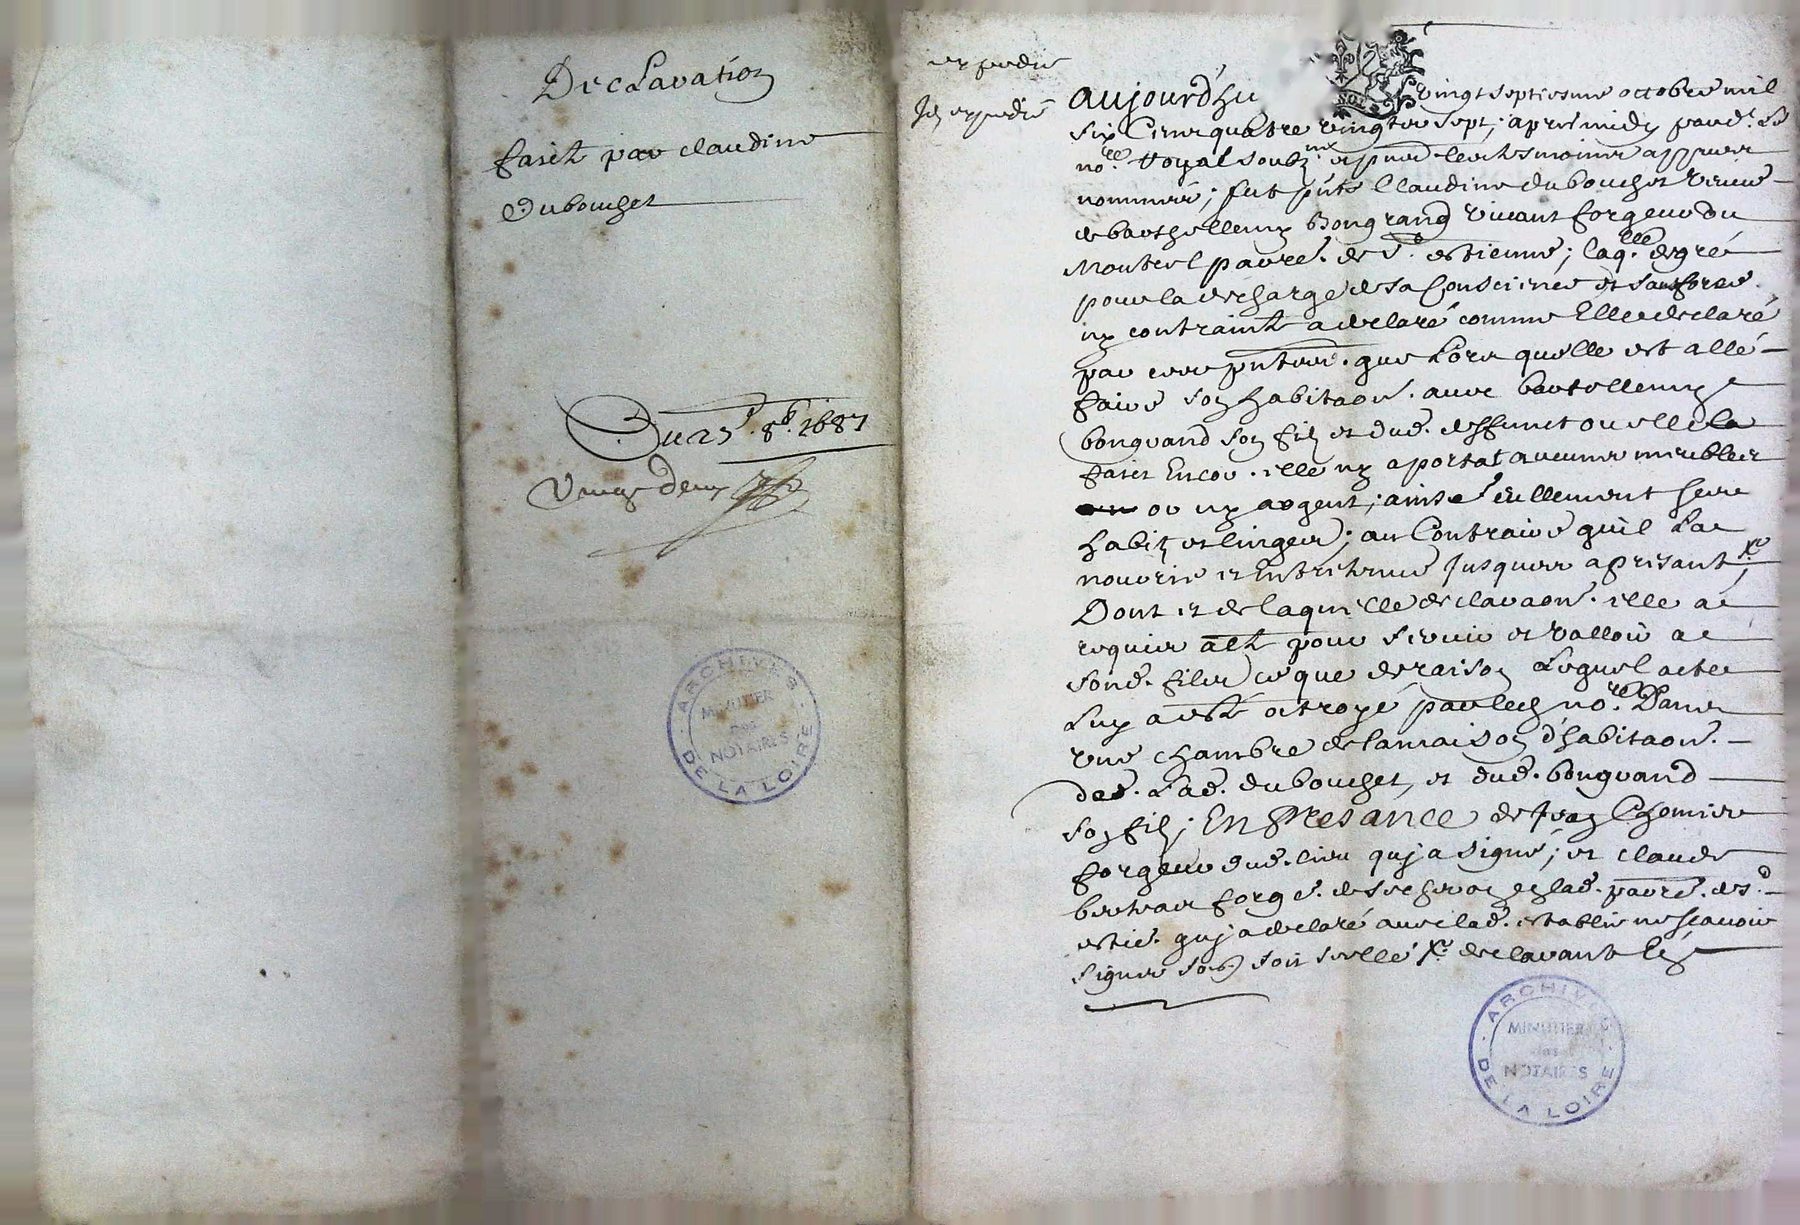 Declaration
faict par claudine
Dubouchet
Du 27e. 8b. 1687
expedié
Jay expedié
aujourd'huy vingt septiesme octobre mil
six Cens quatre vingtz sept; apres midy pard. Le
nore. Royal soubzne. et pnd les tesmoins appres
nommés; fut pnte Claudine dubouchet veuve
de barthellemy Bongrand vivant forgeur du
Monteil parre. de St. estienne; laqlle. de gré
pour la descharge de sa Conscience et sans force
ny contrainte a declaré comme Elle declare
par ces pntes. que Lors quelle est allé
faire son habitaon. avec bartellemy
bongrand son filz et dud. deffunct ou elle la
faict Encor. elle ny a portat aucuns meubles
or ny argent; ains seullement ses
habitz et linges; au Contraire quil La
nourrie et Entretenue Jusques a present
Dont et de laquelle declaraon. elle a
requis acte pour servir et valloir a
sond. filz ce que de raison Lequel acte
Luy a esté octroyé par led nore. Dans
une chambre de la maison d'habitaon.
des. Lad. dubouchet, et dud. bongrand
son filz; En Presance de Jean Chomier
forgeur dud. lieu quj a signé; et claude
forge. de en lad. parre. de St.
estie. quj a declaré avec lad. establie ne scavoir
signer soit scellé declarante
ARCHIVES DE LA LOIRE
MINUTIER
des
NOTAIRES
ARCHIVES DE LA LOIRE
MINUTIER
des
NOTAIRES